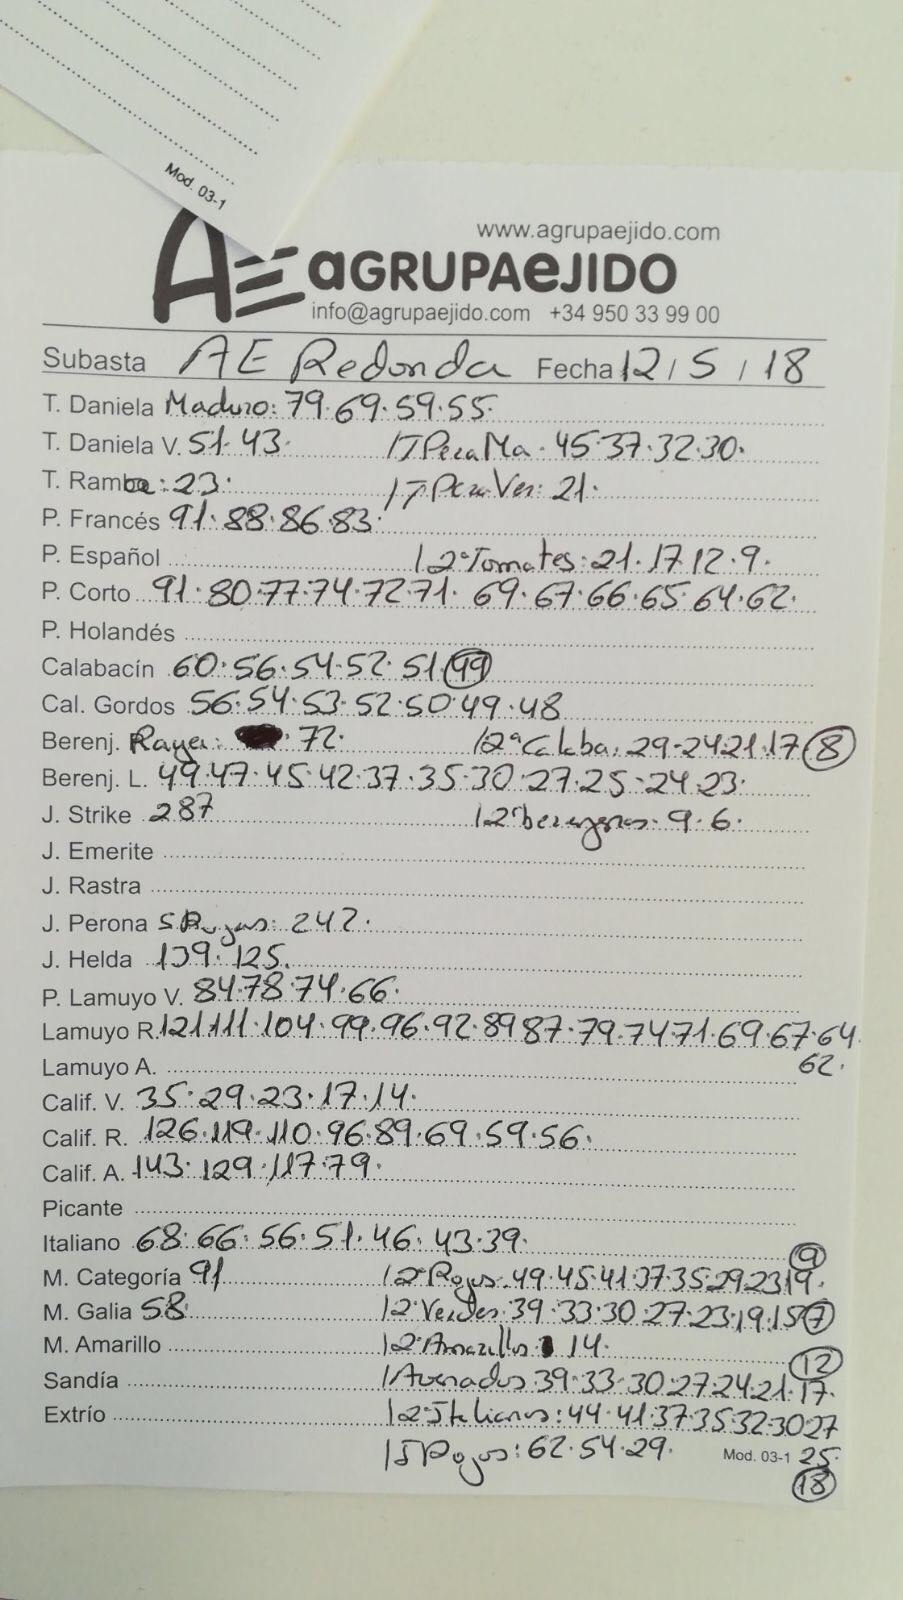 Mod. 03-1
www.agrupaejido.com
AE aGRUPAeJIDO
info@agrupaejido.com +34 950 33 99 00
Subasta AE Redonda Fecha 12/5/18
T. Daniela Maduro: 79.69.59.55.
T. Daniela V. 51.43. / T Pera Ma. 45.37.32.30.
T. Rambo: 23. / T Pera Ver: 21.
P. Francés 91.88.86.83.
P. Español / 2ª Tomates: 21.17.12.9.
P. Corto 91.80.77.74.72.71. 69.67.66.65.64.62.
P. Holandés
Calabacín 60.56.54.52.51.49
Cal. Gordos 56.54.53.52.50.49.48
Berenj. Raya: 72. / 2ª Calaba: 29.24.21.17.8
Berenj. L. 49.47.45.42.37.35.30.27.25.24.23.
J. Strike 287 / 2ª berengenas. 9.6.
J. Emerite
J. Rastra
J. Perona S Rojas: 242.
J. Helda 139.125.
P. Lamuyo V. 84.78.74.66.
Lamuyo R. 121.111.104.99.96.92.89.87.79.74.71.69.67.64.
62.
Lamuyo A.
Calif. V. 35.29.23.17.14.
Calif. R. 126.119.110.96.89.69.59.56.
Calif. A. 143.129.117.79.
Picante
Italiano 68.66.56.51.46.43.39.
9
M. Categoría 91 / 2ª Rojos. 49.45.41.37.35.29.23.19.
M. Galia 58 / 2ª Verdes. 39.33.30.27.23.19.15.7
M. Amarillo / 2ª Amarillos 14.
12
Sandía / Averados 39.33.30.27.24.21.17.
Extrío / 2ª Italianos: 44.41.37.35.32.30.27
/ S Rojos: 62.54.29. Mod. 03-1 25.
18